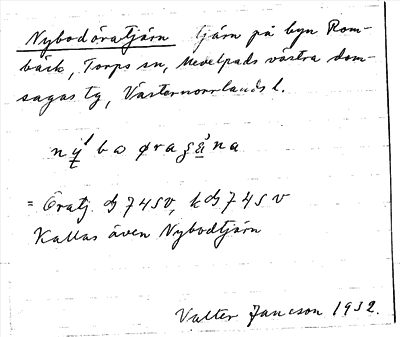 Nybodöratjärn tjärn på byn Rom-
bäck, Torps sn, Medelpads västra dom-
sagas tg, Västernorrlands l.
= Öratj. 74SV, k 74SV
Kallas även Nybodtjärn
Valter Jansson 1932.